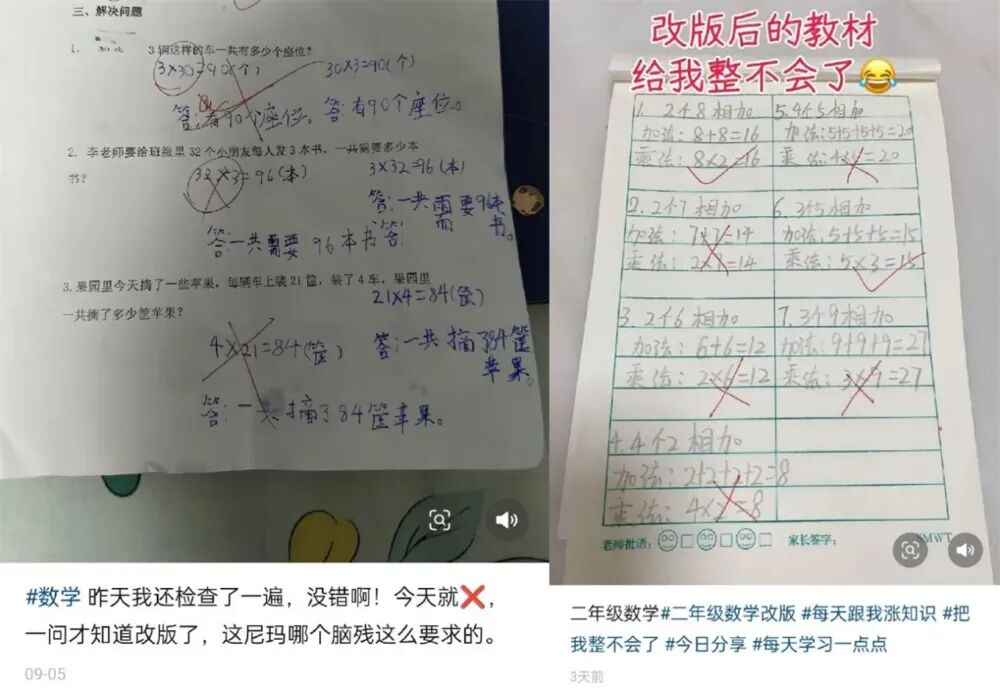 三、解决问题
1. 3辆这样的车一共有多少个座位?
3×30=90(个) 30×3=90(个)
答:有90个座位。 答:有90个座位。
2. 李老师要给班级里32个小朋友每人发3本书,一共需要多少本
书?
32×3=96(本) 3×32=96(本)
答:一共需要96本书。
答:一共需要96本书答:
3.果园里今天摘了一些苹果,每辆车上装21筐,装了4车,果园里
一共摘了多少筐苹果?
21×4=84(筐)
4×21=84(筐)
答:一共摘了84筐
苹果。
答:一共摘了84筐苹果。
#数学 昨天我还检查了一遍,没错啊!今天就❌,
一问才知道改版了,这尼玛哪个脑残这么要求的。
09-05
改版后的教材
给我整不会了😂
1. 2个8相加
加法:8+8=16
乘法:8×2=16
2. 2个7相加
加法:7+7=14
乘法:2×7=14
3. 2个6相加
加法:6+6=12
乘法:2×6=12
4. 4个2相加
加法:2+2+2+2=8
乘法:4×2=8
5. 4个5相加
加法:5+5+5+5=20
乘法:4×5=20
6. 3个5相加
加法:5+5+5=15
乘法:5×3=15
7. 3个9相加
加法:9+9+9=27
乘法:3×9=27
老师批语: 家长签字: SMWT
二年级数学#二年级数学改版 #每天跟我涨知识 #把
我整不会了 #今日分享 #每天学习一点点
3天前